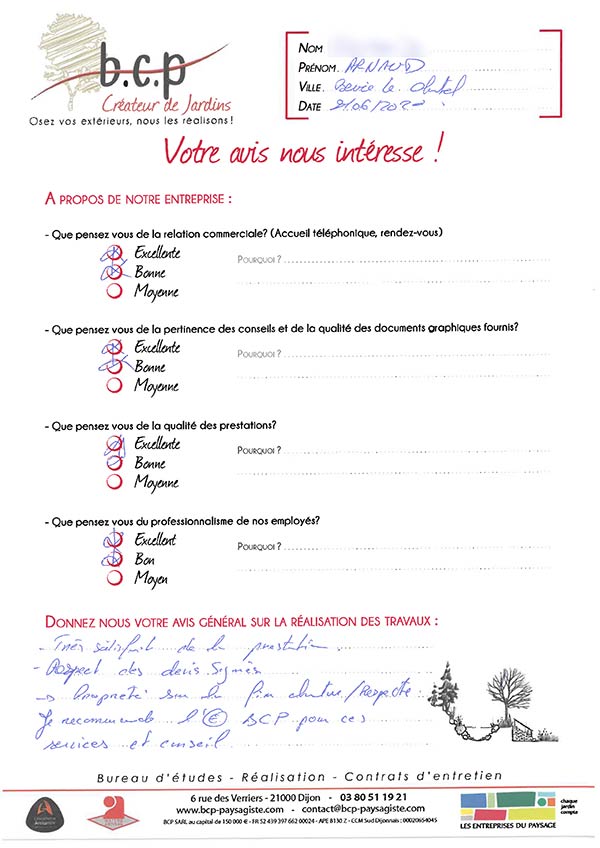 b.c.p
Créateur de Jardins
Osez vos extérieurs, nous les réalisons !
NOM
PRÉNOM. ARNAUD
VILLE.
DATE
Votre avis nous intéresse !
A PROPOS DE NOTRE ENTREPRISE :
- Que pensez vous de la relation commerciale? (Accueil téléphonique, rendez-vous)
Excellente
POURQUOI ?
Bonne
Moyenne
- Que pensez vous de la pertinence des conseils et de la qualité des documents graphiques fournis?
Excellente
POURQUOI ?
Bonne
Moyenne
- Que pensez vous de la qualité des prestations?
Excellente
POURQUOI ?
Bonne
Moyenne
- Que pensez vous du professionnalisme de nos employés?
Excellent
POURQUOI ?
Bon
Moyen
DONNEZ NOUS VOTRE AVIS GÉNÉRAL SUR LA RÉALISATION DES TRAVAUX :
- Très satisfait de la prestation
- Respect des devis signés
→ Propreté sur la fin /Respecte
Je recommande l'€ BCP pour ces
services et conseil
Bureau d'études - Réalisation - Contrats d'entretien
6 rue des Verriers - 21000 Dijon - 03 80 51 19 21
www.bcp-paysagiste.com - contact@bcp-paysagiste.com
BCP SARL au capital de 150 000 € - FR 52 439 397 662 00024 - APE 8130 Z - CCM Sud Dijonnais : 00020654045
chaque
jardin
compte
LES ENTREPRISES DU PAYSAGE